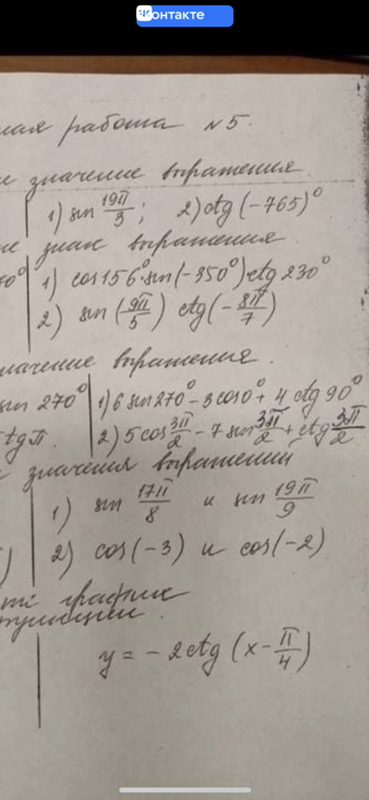 контакте
ная работа №5.
значение выражения
1) sin 19π/3 ; 2) ctg(-765)°
знак выражения
0° 1) cos156°·sin(-350°)·ctg 230°
2) sin(9π/5) ctg(-8π/7)
значение выражения.
sin 270° 1) 6 sin270° - 3cos0° + 4 ctg 90°
tg π. 2) 5cos 3π/2 - 7 sin 3π/2 + ctg 3π/2
значения выражений
1) sin 17π/8 и sin 19π/9
2) cos(-3) и cos(-2)
график
функции
y = -2ctg (x - π/4)